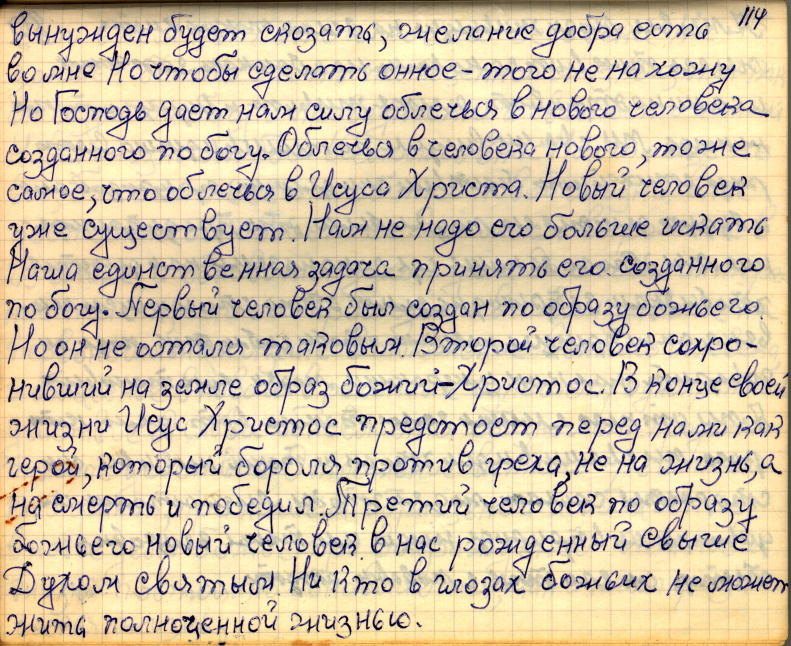 114
вынужден будет сказать, желание добра есть
во мне Но чтобы сделать онное - того не нахожу
Но Господь дает нам силу облечься в нового человека
созданного по богу. Облечься в человека нового, тоже
самое, что облечься в Исуса Христа. Новый человек
уже существует. Нам не надо его больше искать
Наша единственная задача принять его. созданного
по богу. Первый человек был создан по образу божьего.
Но он не остался таковым. Второй человек сохро-
нивший на земле образ божий - Христос. В конце своей
жизни Исус Христос предстоет перед нами как
герой, который боролся против греха, не на жизнь, а
на смерть и победил. Третий человек по образу
божьего новый человек в нас рожденный свыше
Духом святым. Ни кто в глозах божьих не может
жить полноценной жизнью.